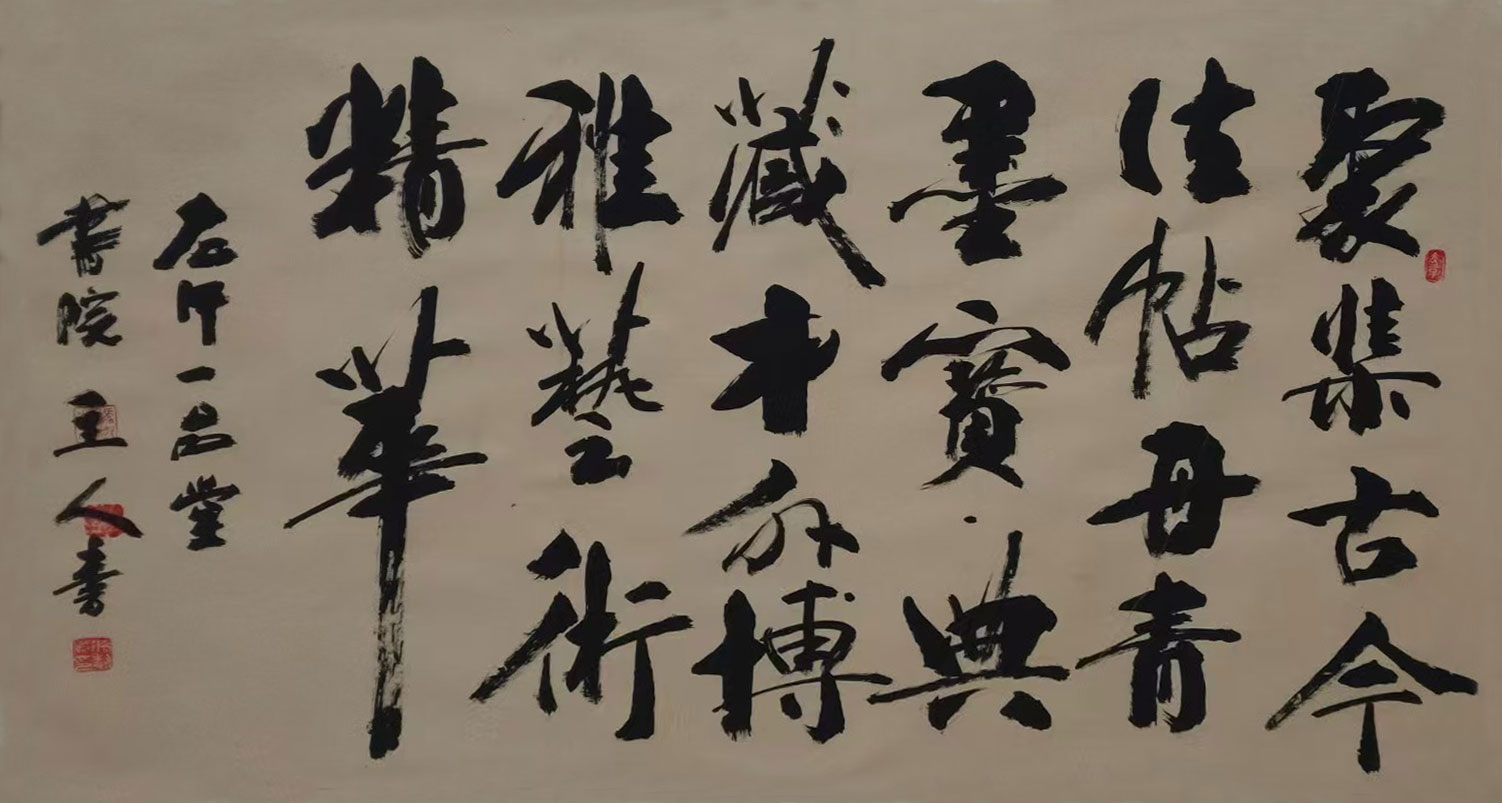 聚集古今
法帖丹青
墨寶典
藏中外博
雅藝術
精華
一品堂
書院主人書